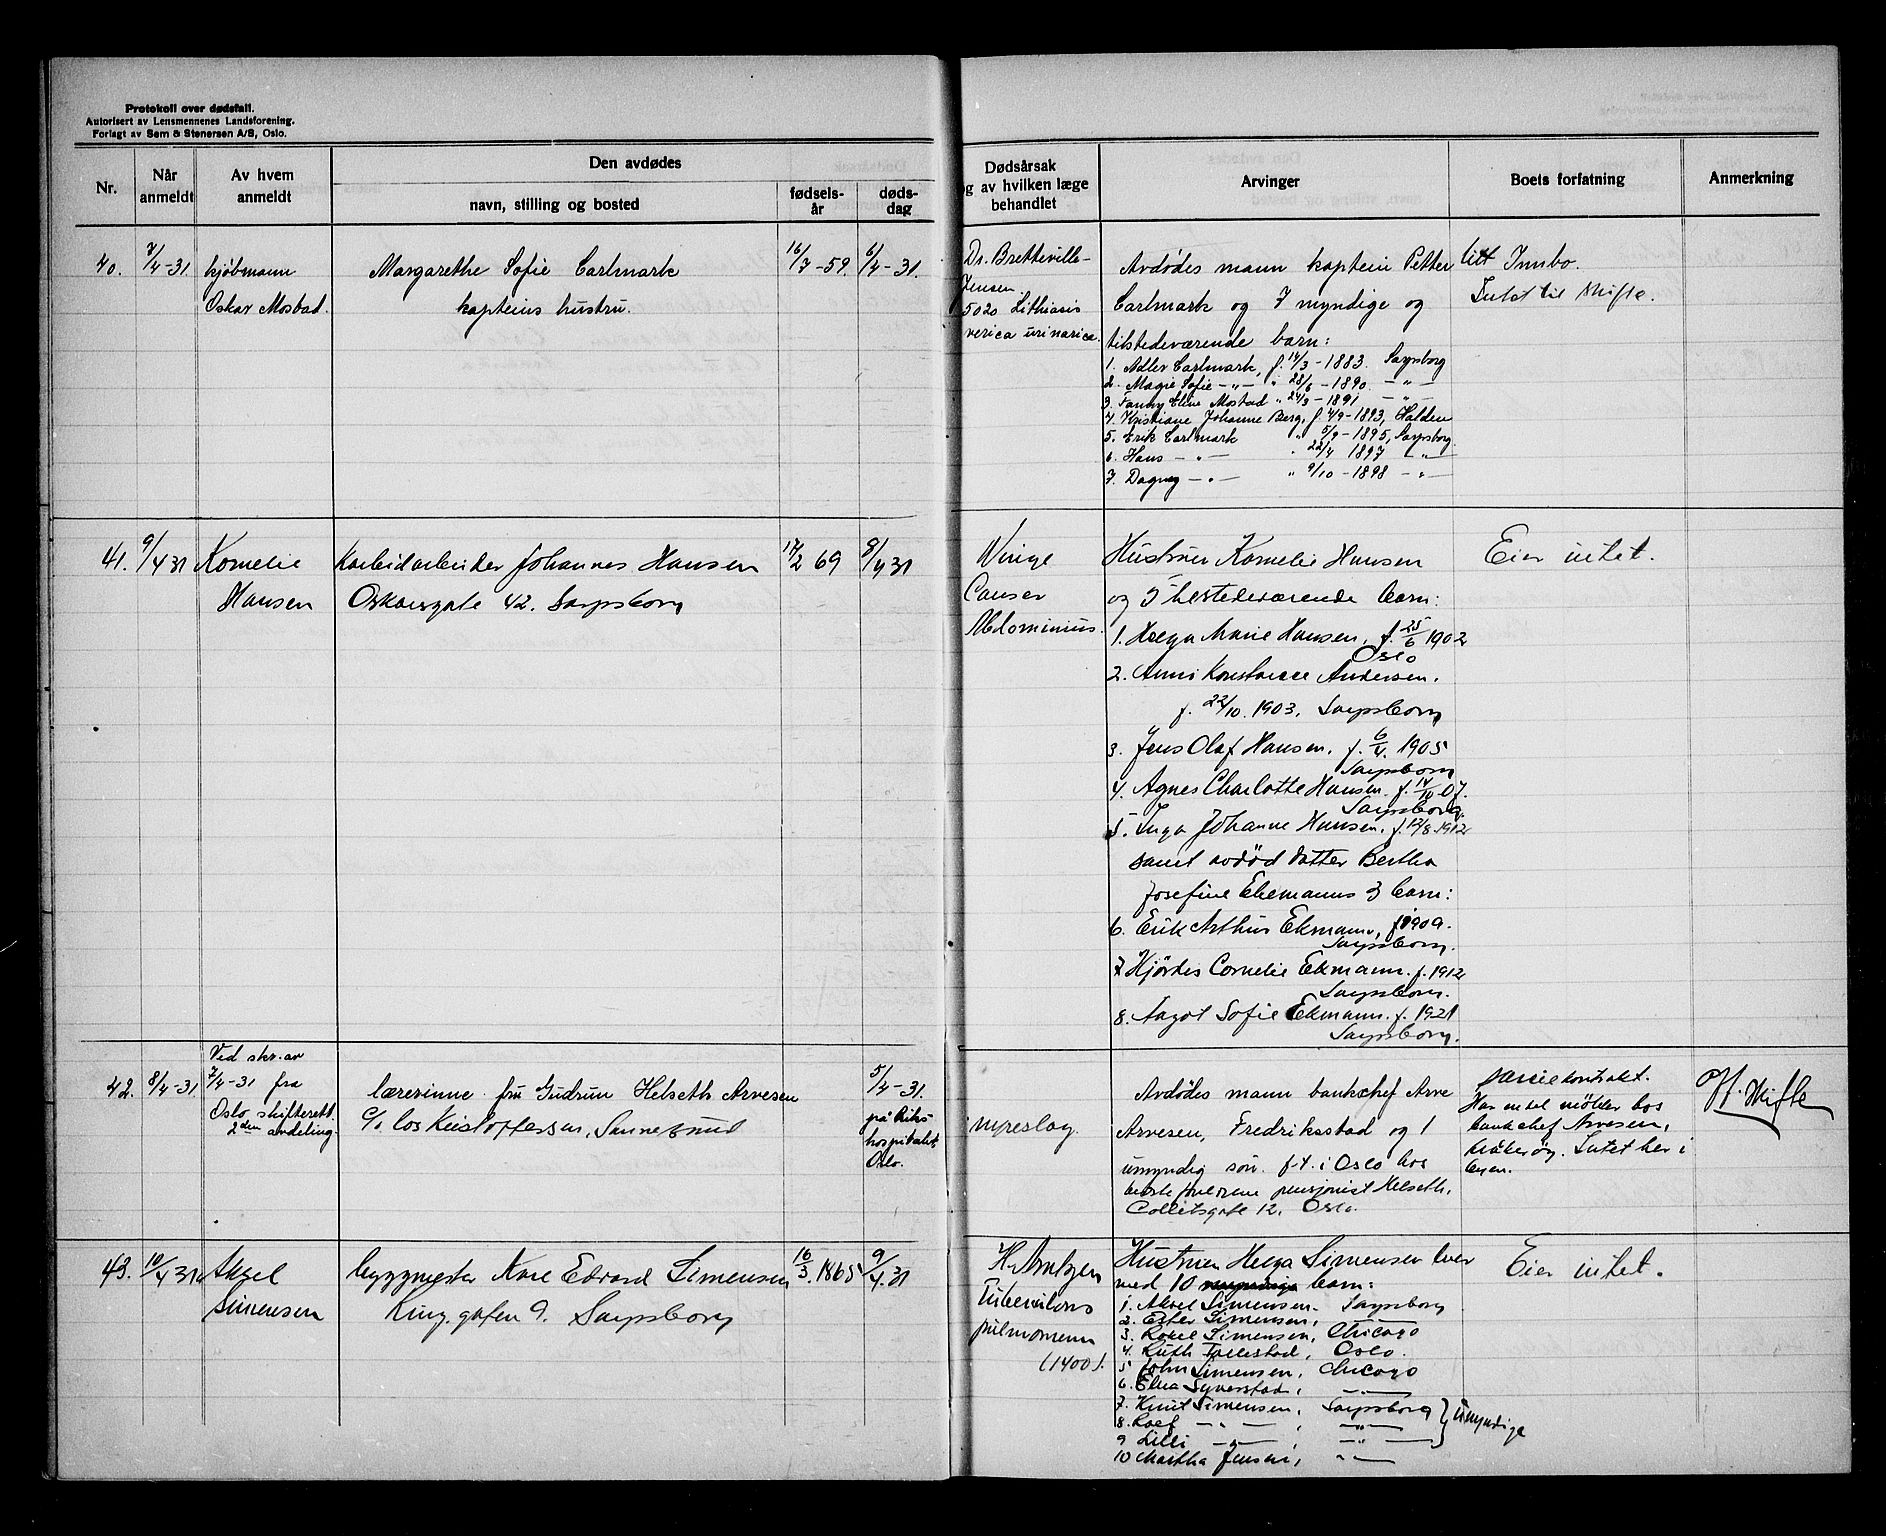 Protokoll over dødsfall.
Autorisert av Lensmennenes Landsforening.
Forlagt av Sem & Stenersen A/S, Oslo.
Nr.
Når anmeldt
Av hvem anmeldt
Den avdødes
navn, stilling og bosted
fødsels-
år
døds-
dag
Dødsårsak
og av hvilken læge
behandlet
Arvinger
Boets forfatning
Anmerkning
40. 7/4-31. kjøbmann
Oskar Mosbad.
Margarethe Sofie Carlmark
kapteins hustru.
16/7-59. 6/4-31.
Dr. Bretteville-
Jensen.
5020 Lithiasis
verica urinarica.
Avdødes mann kaptein Petter
Carlmark og 7 myndige og
tilstedeværende barn:
1. Adler Carlmark, f. 14/3-1883. Sarpsborg
2. Magie Sofie -"- " 28/6-1890. -"-
3. Fanny Eline Mostad " 24/3-1891 -"-
4. Kristiane Johanne Berg, f 4/9-1893, Halden
5. Erik Carlmark " 5/9-1895, Sarpsborg.
6. Hans -"- " 22/4 1897 -"-
7. Dagny -"- " 9/10-1898 -"-
litt Innbo.
Intet til skifte.
41. 9/4 31 Kornelie
Hansen
Karbidarbeider Johannes Hansen
Oskarsgate 42. Sarpsborg
17/2 69 8/4 31
Winge
Canser
Abdominius.
Hustruen Kornelie Hansen
og 5 tilstedeværende barn:
1. Helga Marie Hansen, f. 25/6 1902
Oslo
2. Anni Konstance Andersen.
f. 22/10. 1903. Sarpsborg
3. Jens Olaf Hansen. f. 6/4. 1905
Sarpsborg
4. Agnes Charlotte Hansen. f. 14/10 07.
Sarpsborg.
5. Inga Johanne Hansen. f. 12/8. 1912
samt avdød datter Bertha
Josefine Ekemanns 3 barn:
6. Erik Arthur Ekmann, f. 1909.
Sarpsborg.
7 Hjørdis Cornelie Ekmann. f. 1912
Sarpsborg.
8. Aagot Sofie Ekmann. f. 1921
Sarpsborg.
Eier intet.
42. 8/4-31. Ved skr. av
7/4-31 fra
Oslo skifterett.
2den avdeling.
lærerinne fru Gudrun Helseth Arvesen
c/o Los Kristoffersen, Sannesund
5/4-31.
på Riks-
hospitalet,
Oslo.
nyreslag.
Avdødes mann bankchef Arve
Arvesen, Fredriksstad og 1
umyndig søn. f.t. i Oslo hos
besteforeldrene pensjonist Helseth,
Colletsgate 12. Oslo.
Særiekontrakt.
Har en del møbler hos
bankchef Arvesen,
Intet her i
byen.
Off. skifte
43. 10/4 31 Aksel
Simensen
byggmester Karl Edvard Simensen
King. gaten 9. Sarpsborg
16/3. 1865 9/4.31
H. Arntzen
Tuberculosis
pulmonum
(1400).
Hustruen Helga Simensen lever
med 10 myndige barn:
1. Aksel Simensen. Sarpsborg
2. Ester Simensen, -"-
3. Rolf Simensen, Chicago
4. Ruth Tollestad, Oslo.
5 John Simensen, Chicago
6. Elna Syverstad, -"-
7. Knut Simensen, Sarpsborg } umyndige
8. Roef -"- , -"-
9 Lilli -"- , -"-
10 Martha Jensen, -"-
Eier intet.